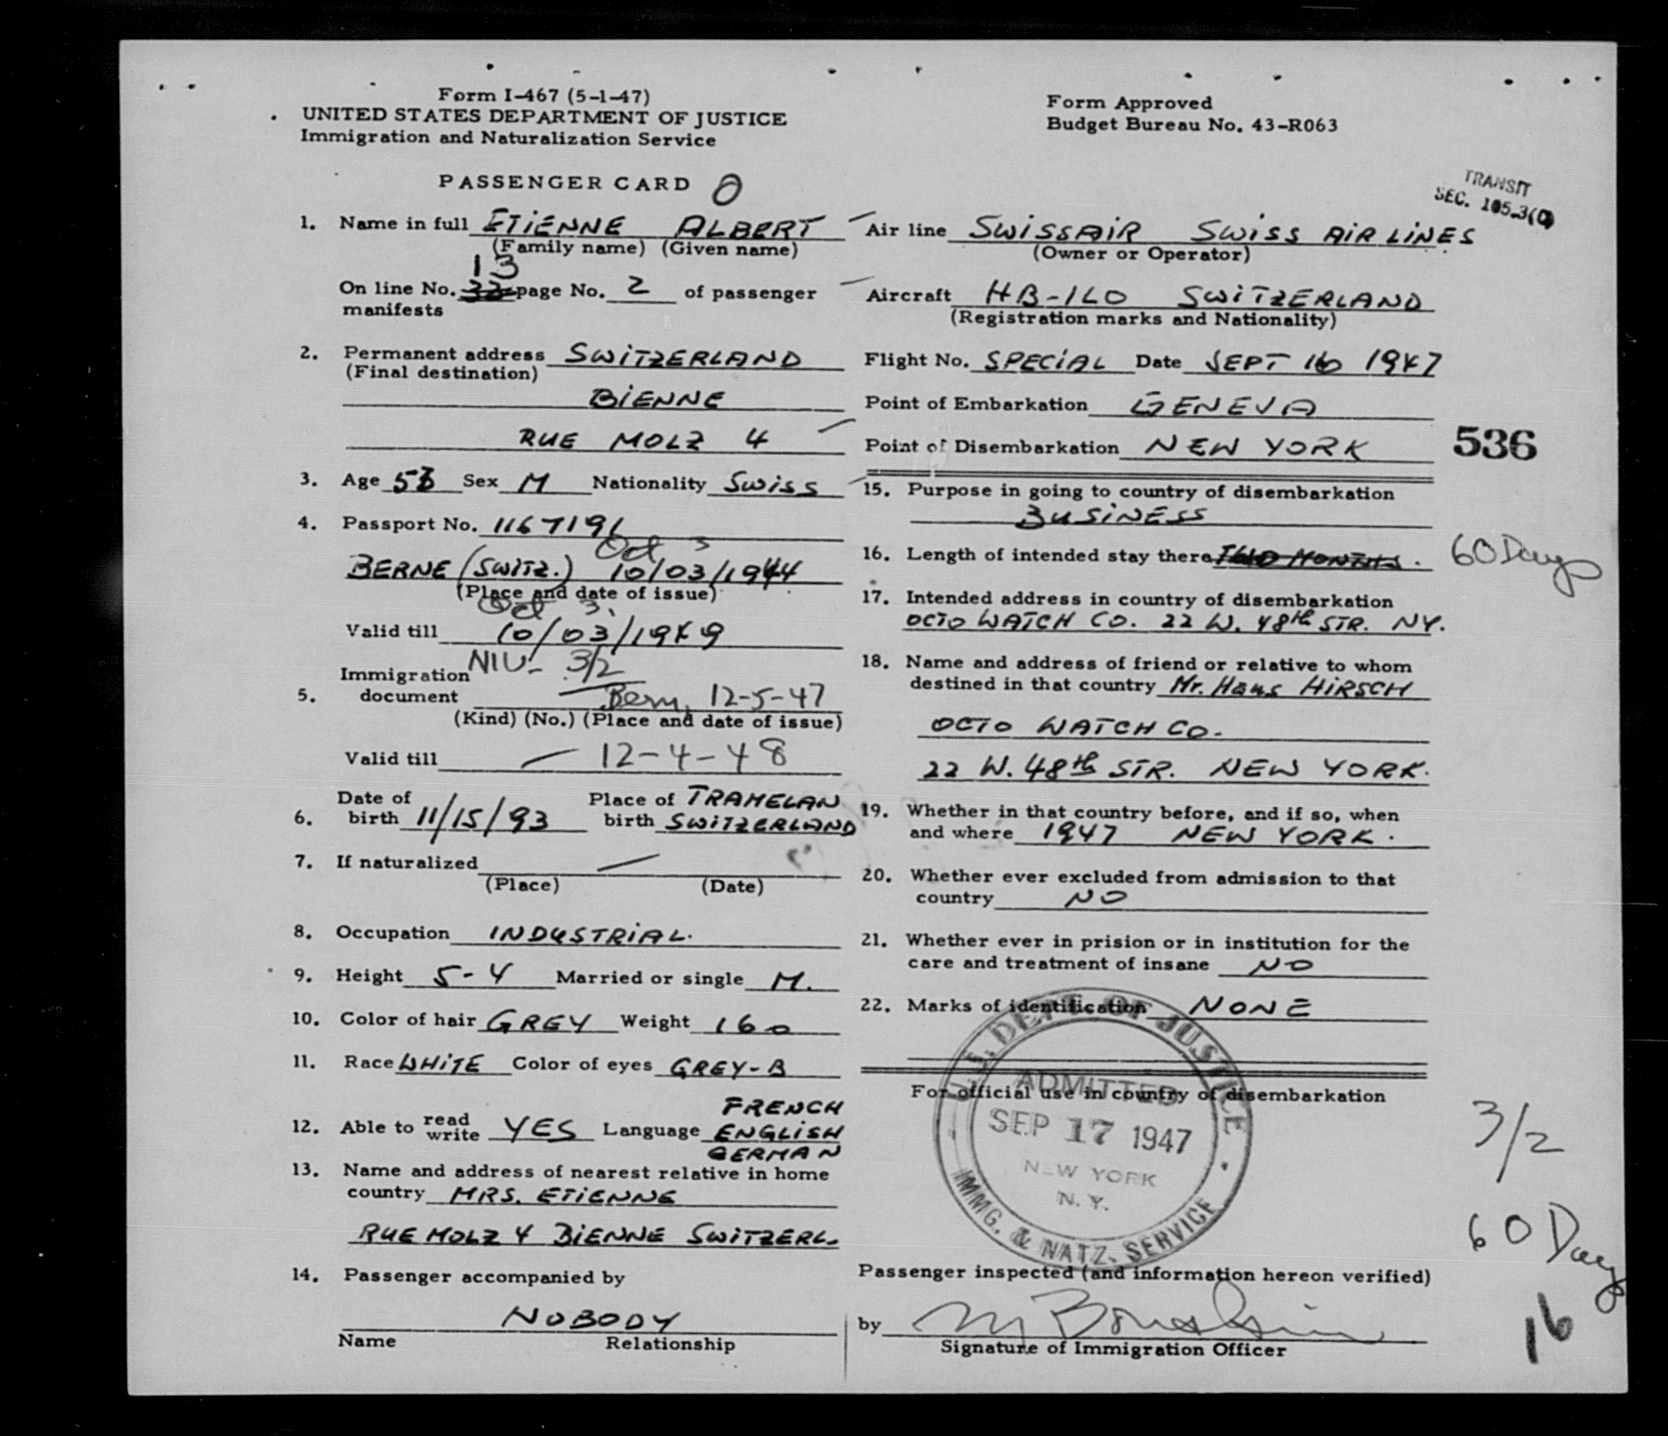 Form I-467 (5-1-47)
UNITED STATES DEPARTMENT OF JUSTICE
Immigration and Naturalization Service
Form Approved
Budget Bureau No. 43-R063
PASSENGER CARD
TRANSIT
SEC. 105.3(C)
1. Name in full ETIENNE ALBERT
(Family name) (Given name)
13
On line No. 32 page No. 2 of passenger
manifests
2. Permanent address SWITZERLAND
(Final destination)
BIENNE
RUE MOLZ 4
3. Age 53 Sex M Nationality SWISS
4. Passport No. 1167191
Oct 3
BERNE (SWITZ.) 10/03/1944
(Place and date of issue)
Oct 3,
Valid till 10/03/1949
Immigration NIV- 3/2
5. document Bern, 12-5-47
(Kind) (No.) (Place and date of issue)
Valid till — 12-4-48
6. Date of birth 11/15/93 Place of birth TRAMELAN
SWITZERLAND
7. If naturalized —
(Place) (Date)
8. Occupation INDUSTRIAL.
9. Height 5-4 Married or single M.
10. Color of hair GREY Weight 160
11. Race WHITE Color of eyes GREY-B
FRENCH
12. Able to read write YES Language ENGLISH
GERMAN
13. Name and address of nearest relative in home
country MRS. ETIENNE
RUE MOLZ 4 BIENNE SWITZERL.
14. Passenger accompanied by
NOBODY
Name Relationship
Air line SWISSAIR SWISS AIR LINES
(Owner or Operator)
Aircraft HB-ILO SWITZERLAND
(Registration marks and Nationality)
Flight No. SPECIAL Date SEPT 16 1947
Point of Embarkation GENEVA
Point of Disembarkation NEW YORK
536
15. Purpose in going to country of disembarkation
BUSINESS
16. Length of intended stay there TWO MONTHS. 60 Days
17. Intended address in country of disembarkation
OCTO WATCH CO. 22 W. 48th STR. NY.
18. Name and address of friend or relative to whom
destined in that country Mr. Hans HIRSCH
OCTO WATCH CO.
22 W. 48th STR. NEW YORK.
19. Whether in that country before, and if so, when
and where 1947 NEW YORK.
20. Whether ever excluded from admission to that
country NO
21. Whether ever in prision or in institution for the
care and treatment of insane NO
22. Marks of identification NONE
For official use in country of disembarkation
U.S. DEPT. OF JUSTICE
ADMITTED
SEP 17 1947
NEW YORK
N. Y.
IMMG. & NATZ. SERVICE
3/2
60 Days
16
Passenger inspected (and information hereon verified)
by
Signature of Immigration Officer